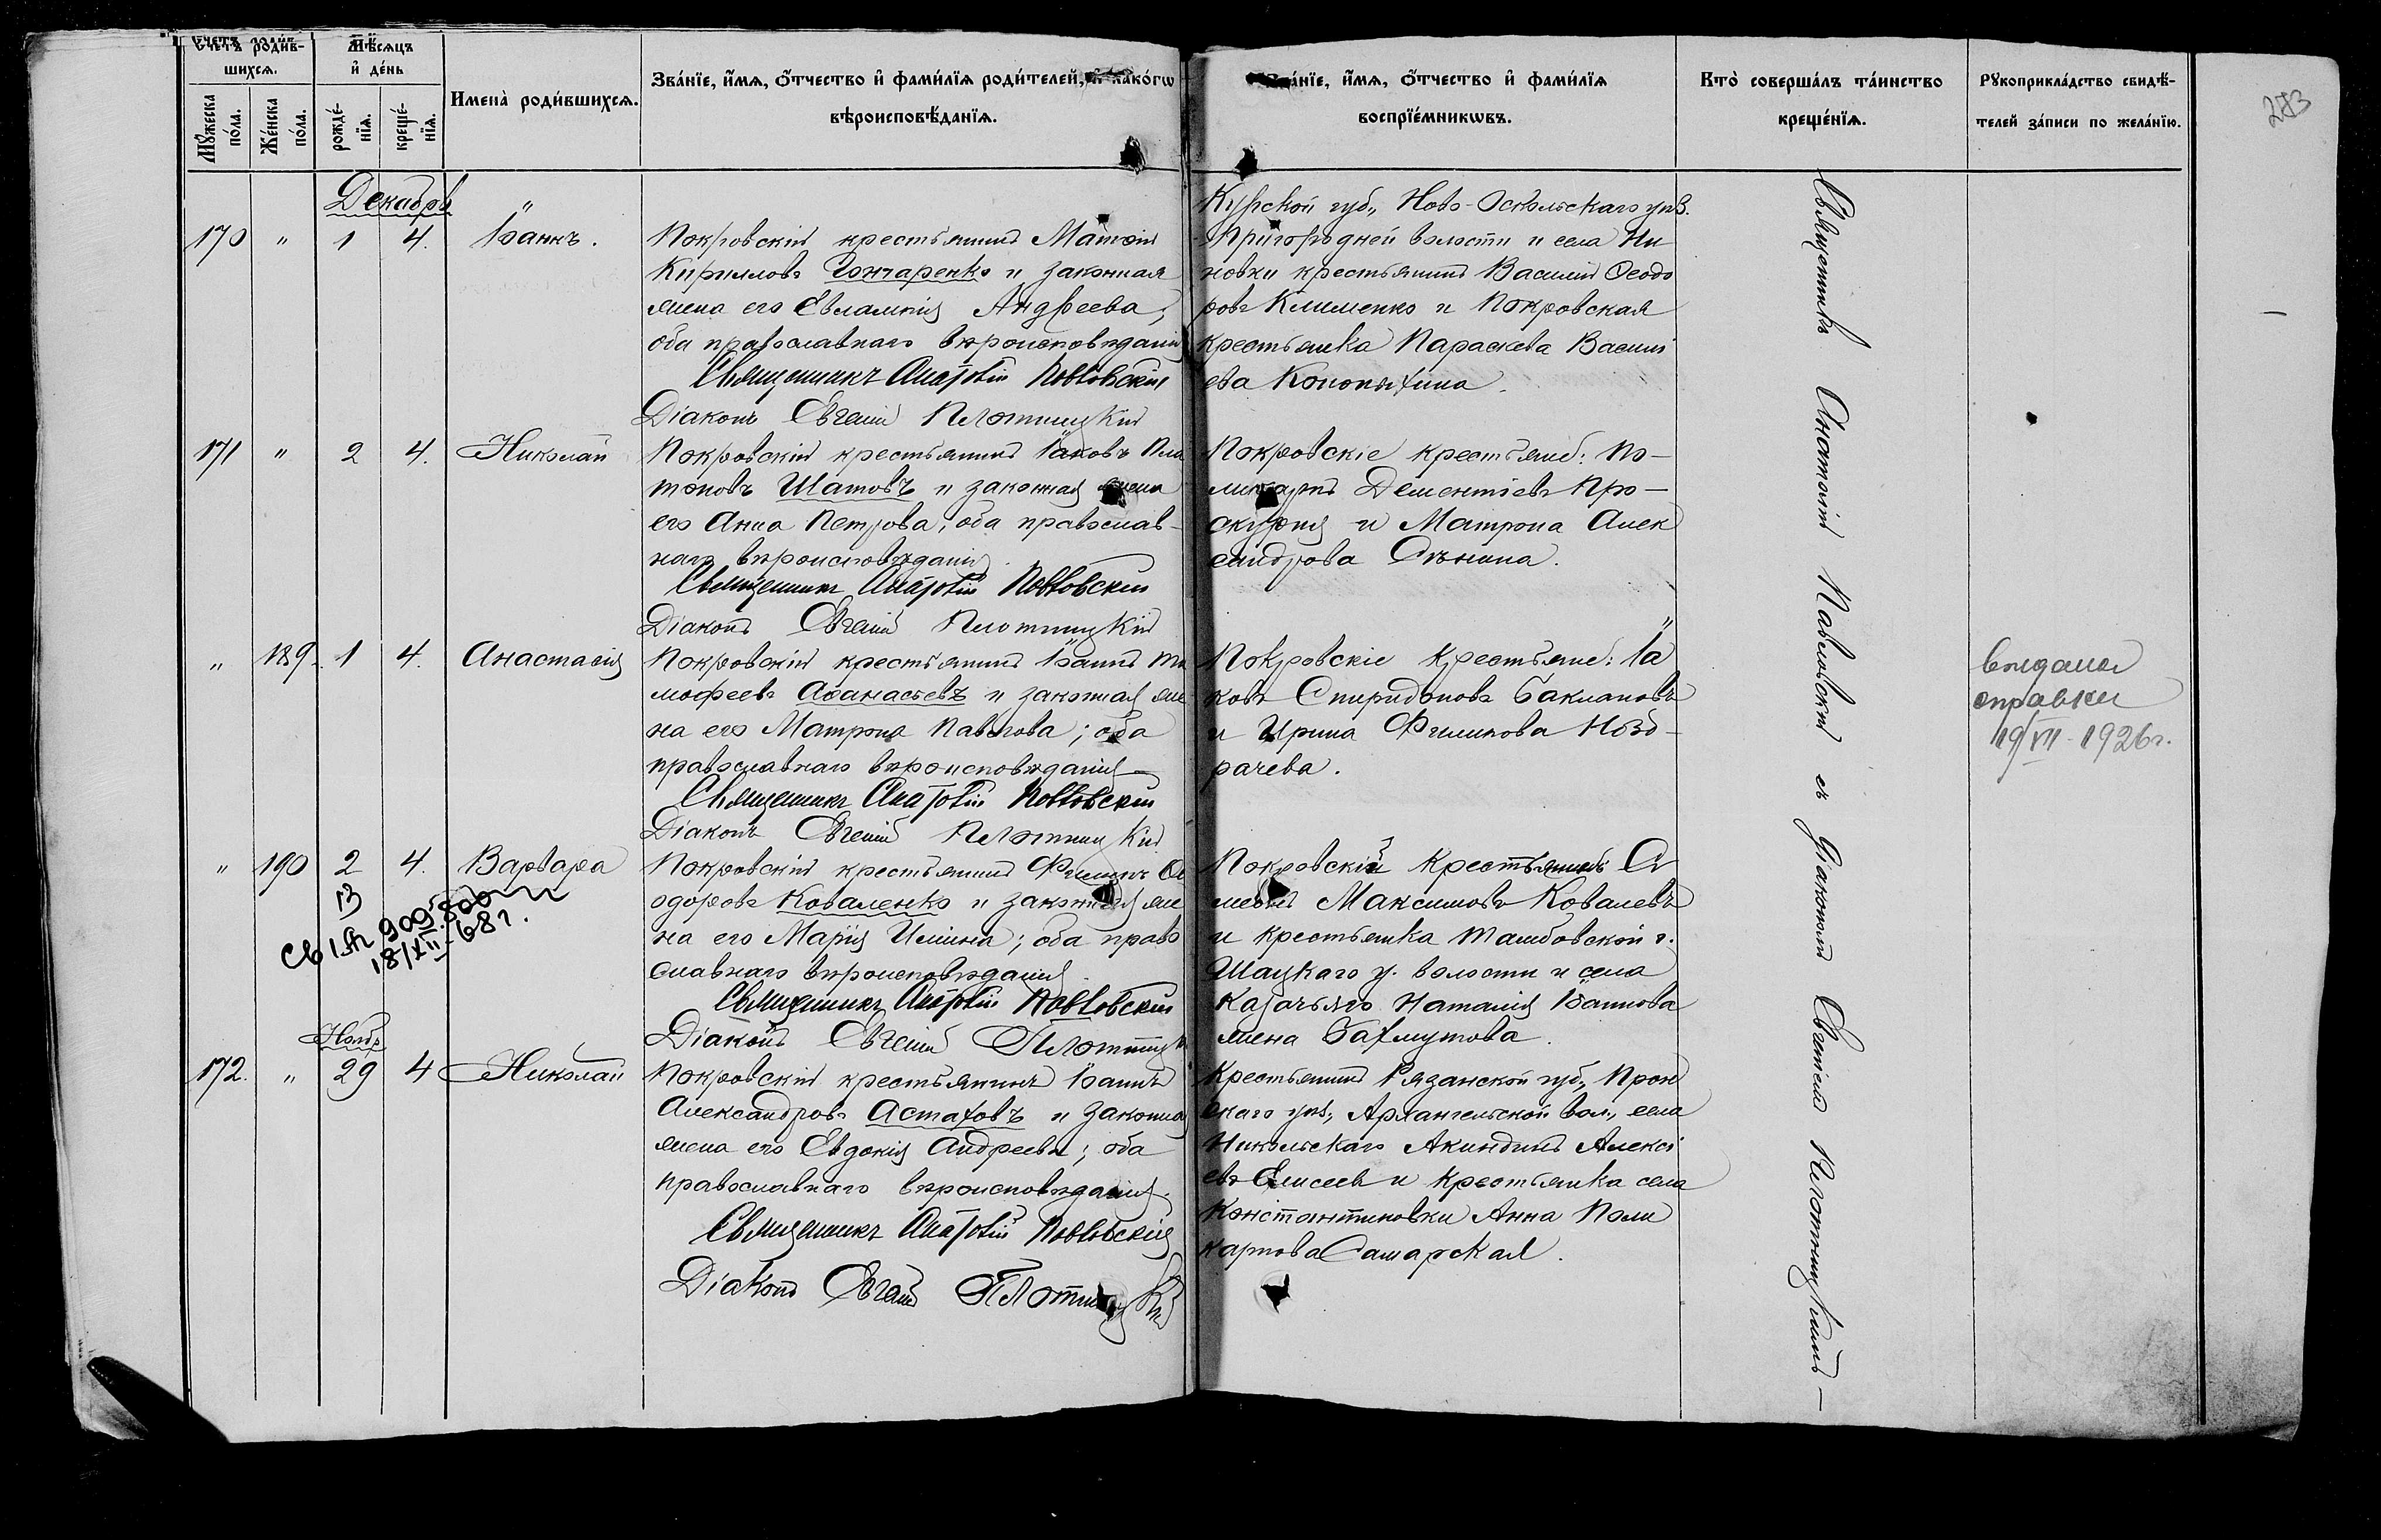 Счетъ роди́в-
шихся.
Мѣ́сяцъ
и҆ де́нь
Мꙋ́жеска по́ла.
Же́нска по́ла.
рожде́-
нїѧ.
креще́-
нїѧ.
Имена̀ роди́вшихсѧ.
Зва́нїе, и҆́мѧ, ѻ҆́тчество и҆ фами́лїѧ роди́телей, и҆ како́гѡ
вѣроисповѣ́данїѧ.
Зва́нїе, и҆́мѧ, ѻ҆́тчество и҆ фами́лїѧ
воспрїе́мникѡвъ.
Кто̀ соверша́лъ та́инство
креще́нїѧ.
Рꙋкоприкла́дство свидѣ́-
телей за́писи по жела́нїю.
283
Декабрь
170 " 1 4. Іоаннъ.
Покровскій крестьянинъ Матѳій
Кирилловъ Гончаренко и законная
жена его Евлампія Андреева;
оба православнаго вѣроисповѣданія
Священникъ Анатолій Павловскій
Діаконъ Евгеній Плотницкій
Курской губ., Ново-Оскольскаго уѣз.
Пригородней волости и села Ни
новки крестьянинъ Василій Ѳеодо
ровъ Клименко и Покровская
крестьянка Параскева Василі
ева Конопыхина.
171 " 2 4. Николай
Покровскій крестьянинъ Іаковъ Пла
тоновъ Шатовъ и законная жена
его Анна Петрова; оба православ-
наго вѣроисповѣданія.
Священникъ Анатолій Павловскій
Діаконъ Евгеній Плотницкій
Покровскіе крестьяне: По-
ликарпъ Дементіевъ Про-
скурня и Матрона Алек
сандрова Сѣнина.
" 189. 1 4. Анастасія
Покровскій крестьянинъ Іоаннъ Ти
мофеевъ Аѳанасьевъ и законная же
на его Матрона Павлова; оба
православнаго вѣроисповѣданія
Священникъ Анатолій Павловскій
Діаконъ Евгеній Плотницкій
Покровскіе крестьяне: Іа
ковъ Спиридоновъ Баклановъ
и Ирина Филипова Нозд-
рачева.
выдана
справка
19/VII-1926г.
" 190 2 4. Варвара
13
18/XII-68г.
Покровскій крестьянинъ Филиппъ Ѳе
одоровъ Коваленко и законная же
на его Марія Ильина; оба право
славнаго вѣроисповѣданія.
Священникъ Анатолій Павловскій
Діаконъ Евгеній Плотницкій
Покровскій крестьянинъ Си
меонъ Максимовъ Ковалевъ
и крестьянка Тамбовской г.
Шацкаго у. волости и села
Казачьяго Наталія Іоаннова
жена Бахмутова.
Ноябр
172. " 29 4 Николай
Покровскій крестьянинъ Іоаннъ
Александровъ Астаховъ и законная
жена его Евдокія Андреева; оба
православнаго вѣроисповѣданія.
Священникъ Анатолій Павловскій
Діаконъ Евгеній Плотницкій
Крестьянинъ Рязанской губ., Прон
скаго уѣз., Архангельской вол., села
Никольскаго Акиндинъ Алексі
евъ Елисеевъ и крестьянка села
Константиновки Анна Поли
карпова Самарская.
Священникъ Анатолій Павловскій съ діакономъ Евгеніемъ Плотницкимъ—